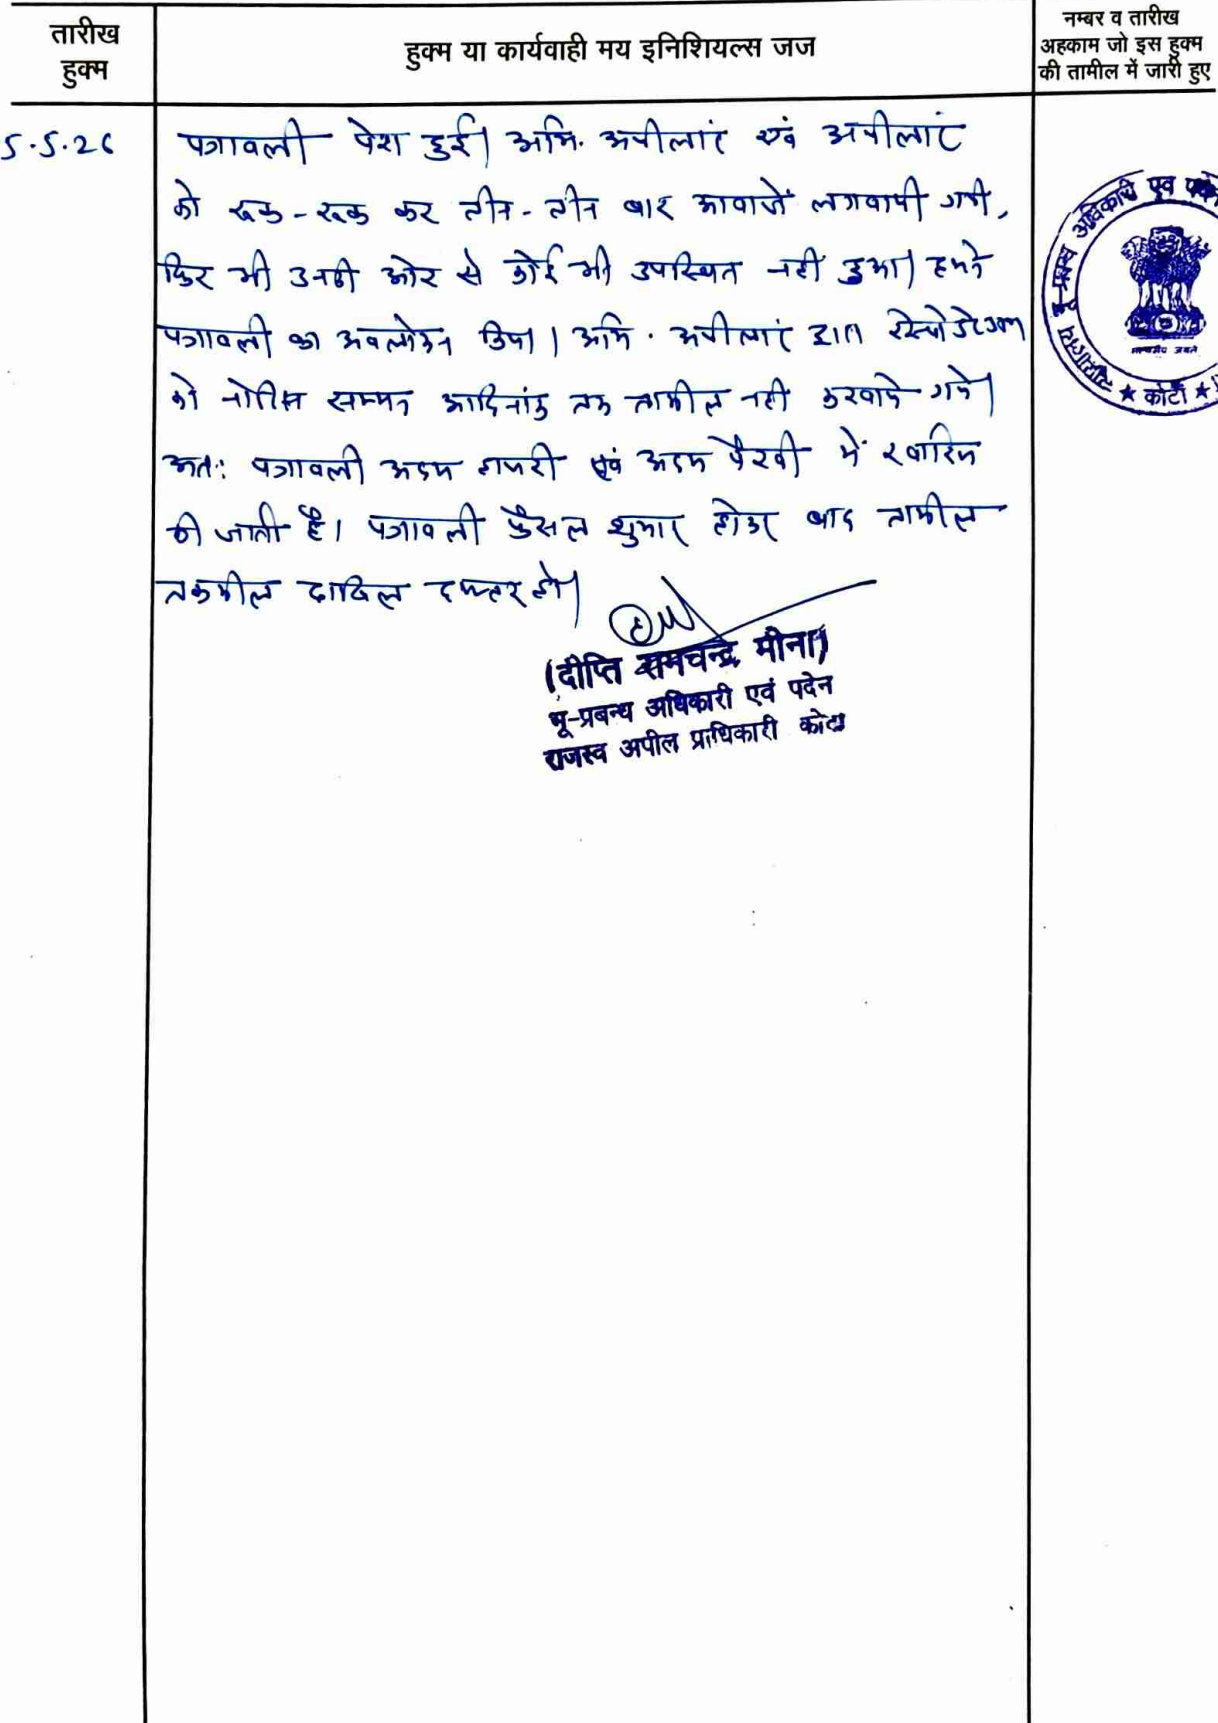 तारीख
हुक्म
हुक्म या कार्यवाही मय इनिशियल्स जज
नम्बर व तारीख
अहकाम जो इस हुक्म
की तामील में जारी हुए
5.5.26
पत्रावली पेश हुई। अभि. अपीलांट एवं अपीलांट
को रूक-रूक कर तीन-तीन बार आवाजें लगवायी गयी,
फिर भी उनकी ओर से कोई भी उपस्थित नहीं हुआ। हमने
पत्रावली का अवलोकन किया। अभि. अपीलांट द्वारा रेस्पोडेन्टगण
को नोटिस सम्मन आदिनांक तक तामील नही करवाये गये।
अतः पत्रावली अदम हाजरी एवं अदम पैरवी में खारिज
की जाती है। पत्रावली फैसल शुमार होकर बाद तामील
तकमील दाखिल दफ्तर हो।
(दीप्ति रामचन्द्र मीना)
भू-प्रबन्ध अधिकारी एवं पदेन
राजस्व अपील प्राधिकारी कोटा
न्यायालय भू-प्रबन्ध अधिकारी एवं
सत्यमेव जयते
★ कोटा ★